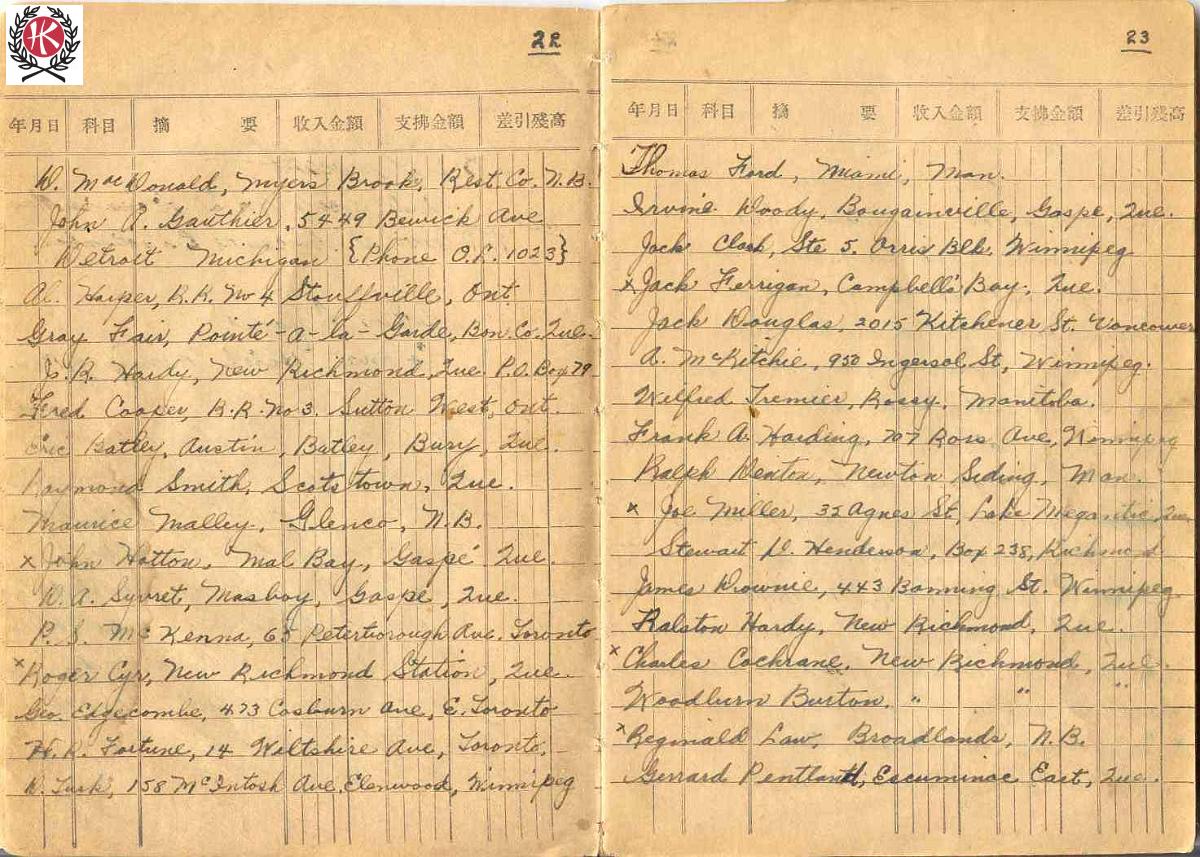 HK
22
年月日 科目 摘 要 収入金額 支拂金額 差引残高
D. MacDonald, Myers Brook, Rest. Co. N.B.
John A. Gauthier, 5449 Bewick Ave
Detroit Michigan {Phone O.R. 1023}
Al. Harper, R.R. No 4 Stouffville, Ont.
Gray Fair, Pointé-a-la-Garde, Bon. Co. Que.
J. R. Hardy, New Richmond, Que. P.O. Box 79
Fred Cooper, R.R. No 3. Sutton West, Ont.
Eric Batley, Austin, Batley, Bury, Que.
Raymond Smith, Scotstown, Que.
Maurice Malley, Glenco, N.B.
x John Hotton, Mal Bay, Gaspé Que.
D. A. Syvret, Masboy, Gaspé, Que.
P. S. McKenna, 65 Peterborough Ave. Toronto
x Roger Cyr, New Richmond Station, Que.
Geo. Edgecombe, 473 Cosburn Ave, E. Toronto
H. R. Fortune, 14 Wiltshire Ave, Toronto.
D. Turk, 158 McIntosh Ave. Elenwood, Winnipeg
23
年月日 科目 摘 要 収入金額 支拂金額 差引残高
Thomas Ford, Miami, Man.
Irvine Doody, Bougainville, Gaspe, Que.
Jack Clark, Ste 5. Orris Blk. Winnipeg
x Jack Ferrigan, Campbell's Bay, Que.
Jack Douglas, 2015 Kitchener St. Vancouver
A. McKitchie, 950 Ingersol St, Winnipeg.
Wilfred Tremier, Rossy, Manitoba.
Frank A. Harding, 707 Ross Ave, Winnipeg
Ralph Denten, Newton Siding, Man.
x Joe Miller, 32 Agnes St, Lake Megantic, Que
Stewart D. Henderson, Box 238, Richmond
James Downie, 443 Banning St. Winnipeg
Ralston Hardy, New Richmond, Que.
x Charles Cochrane, New Richmond, Que.
Woodburn Burton, " " "
x Reginald Law, Broadlands, N.B.
Gerrard Pentland, Escuminac East, Que.